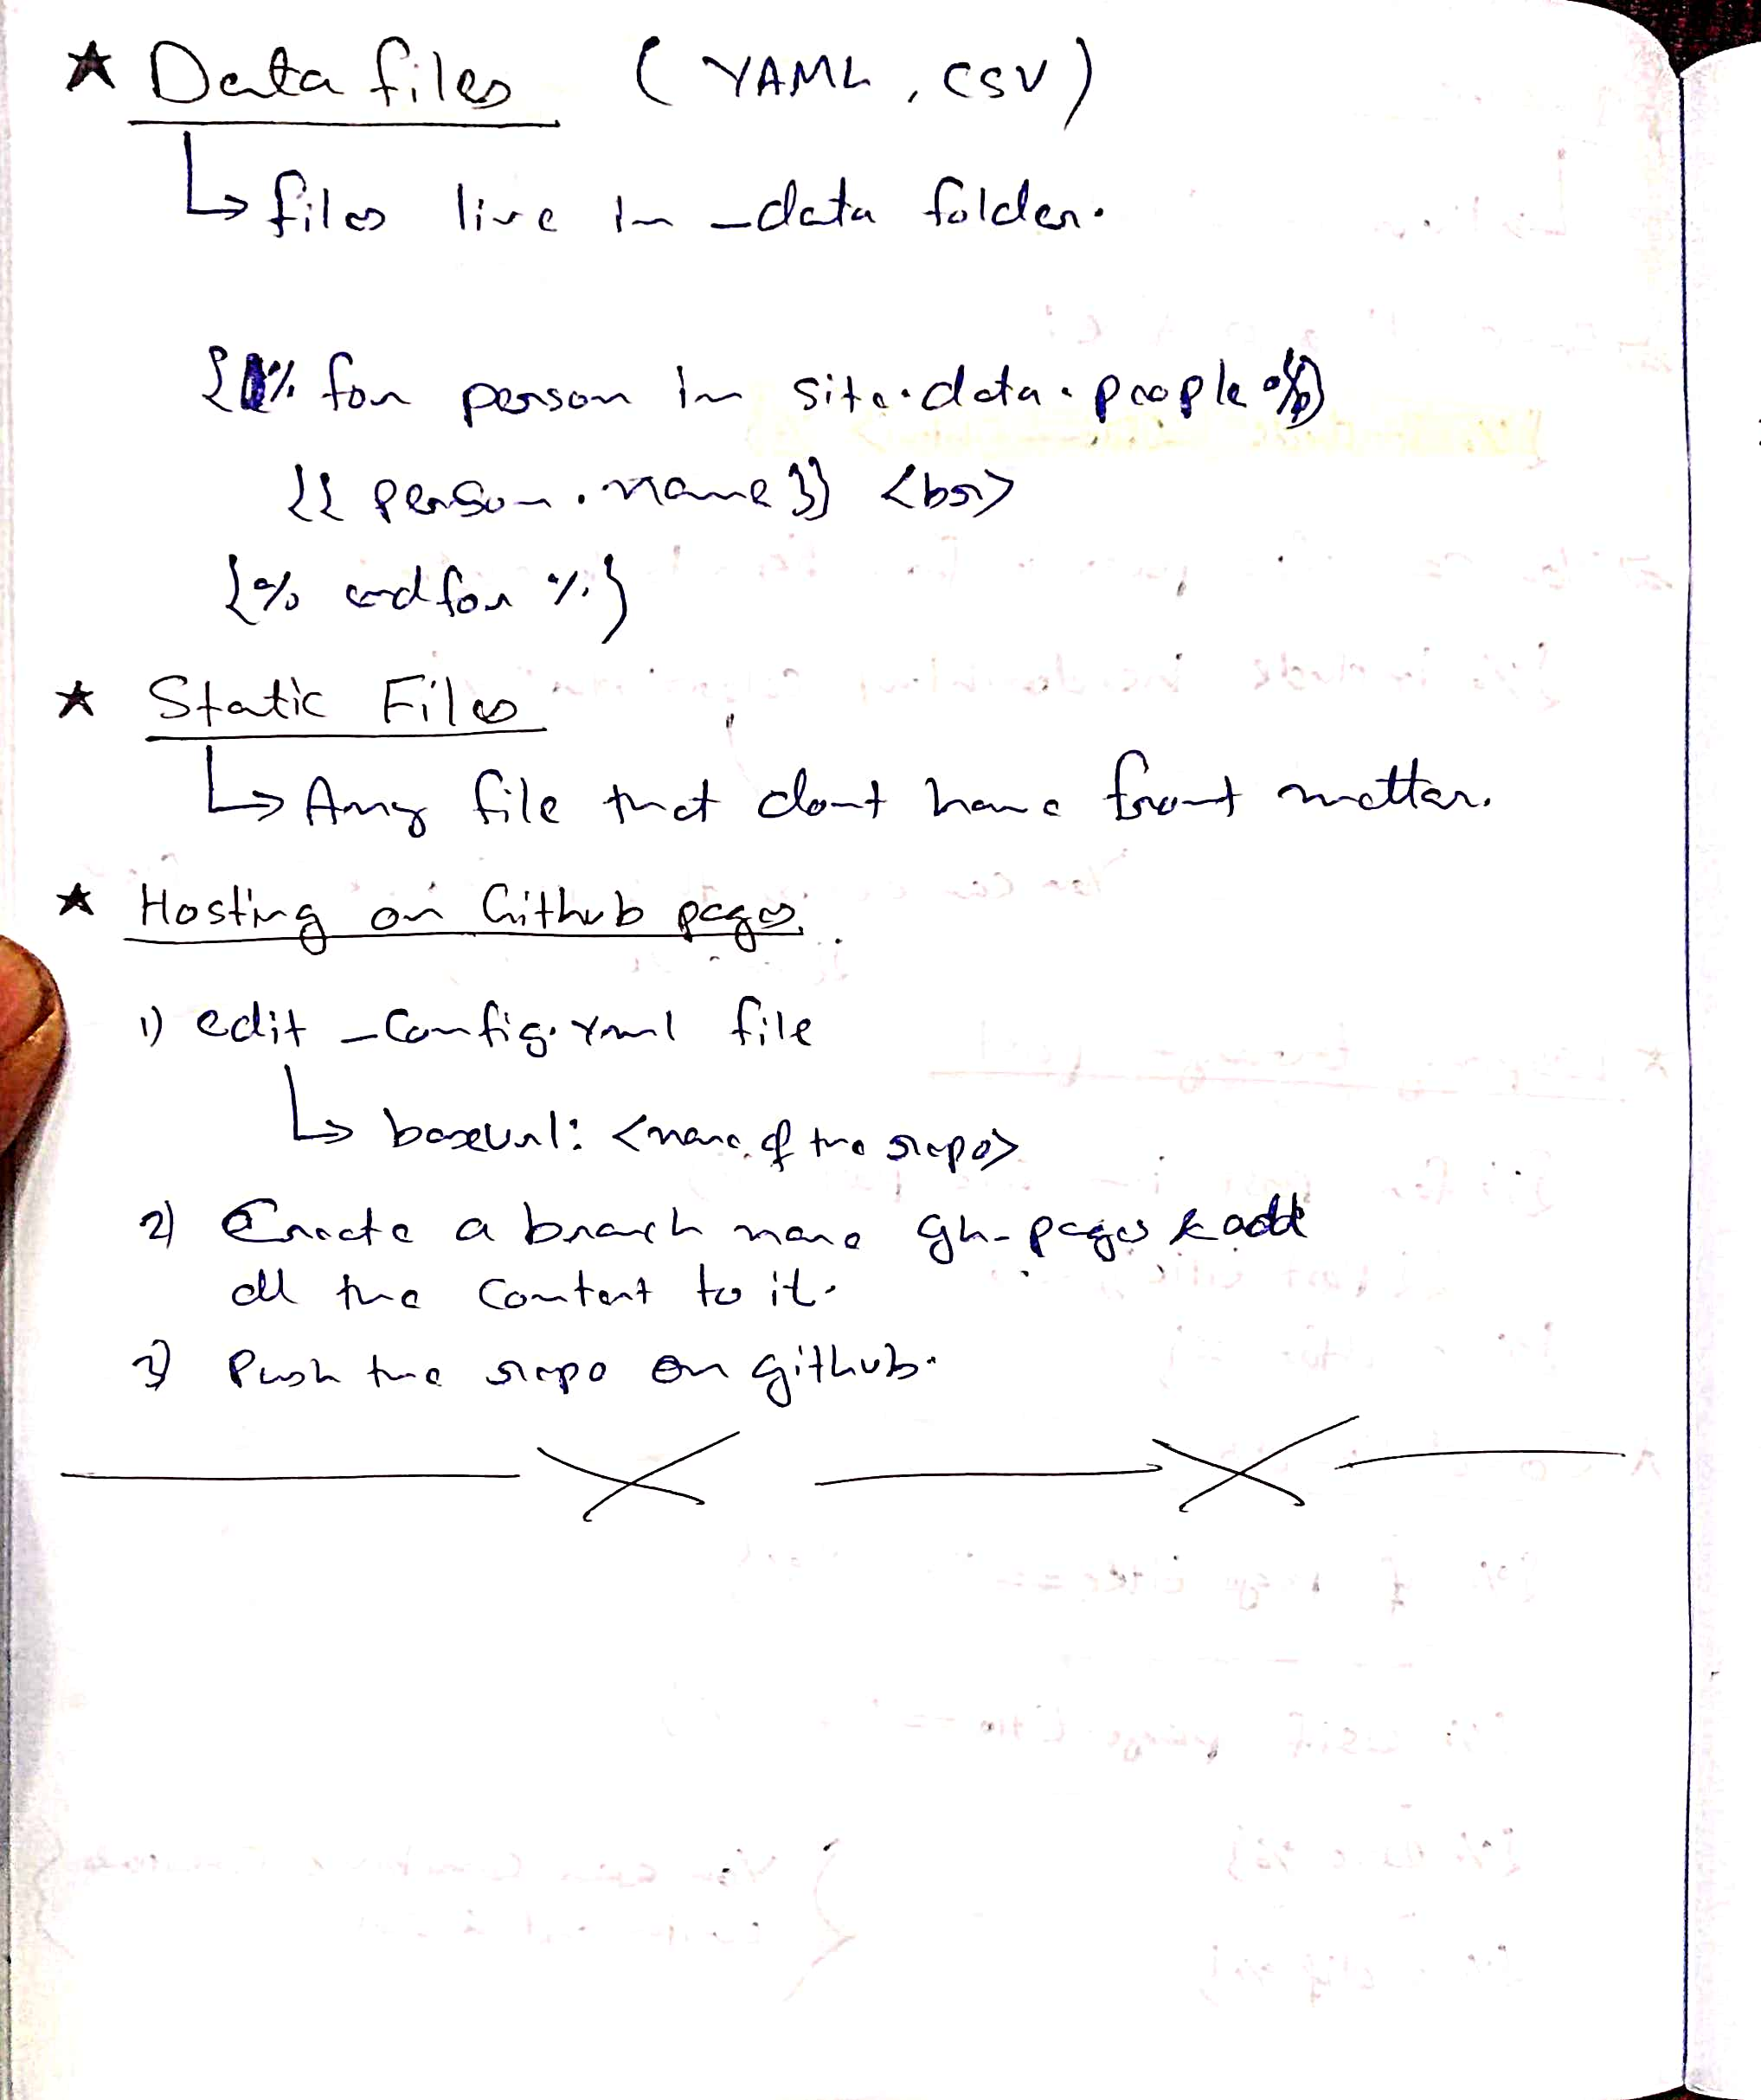 ★ Data files (YAML, CSV)
↳ files live in _data folder.
{% for person in site.data.people %}
{{ person.name }} <br>
{% endfor %}
★ Static Files
↳ Any file that dont have front matter.
★ Hosting on Github pages.
1) edit _config.yaml file
↳ baseurl: <name of the repo>
2) Create a branch name gh-pages & add
all the content to it.
3) Push the repo on github.